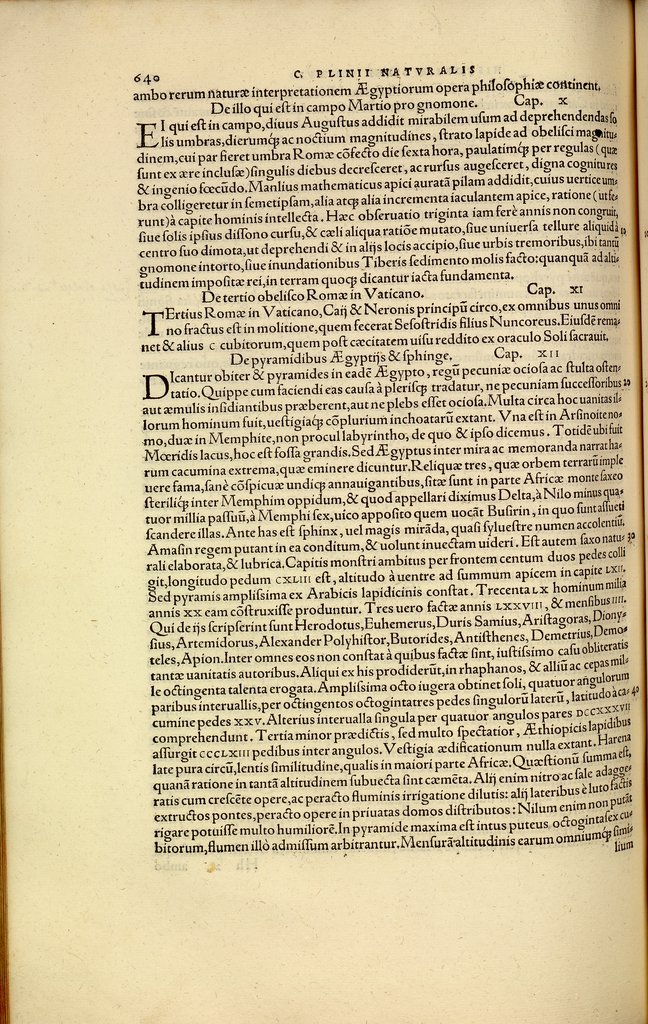 640
C. PLINII NATVRALIS
ambo rerum naturæ interpretationem Ægyptiorum opera philosophiæ continent.
De illo qui est in campo Martio pro gnomone. Cap. X
EI qui est in campo, diuus Augustus addidit mirabilem usum ad deprehendendas so
lis umbras, dierumq; ac noctium magnitudines, strato lapide ad obelisci magnitu-
dinem, cui par fieret umbra Romæ cõfecto die sexta hora, paulatimq; per regulas (quæ
sunt ex ære inclusæ) singulis diebus decresceret, ac rursus augesceret, digna cognitu res
& ingenio fœcũdo. Manlius mathematicus apici auratã pilam addidit, cuius uertice um-
bra colligeretur in semetipsam, alia atq; alia incrementa iaculantem apice, ratione (ut fe-
runt) à capite hominis intellecta. Hæc obseruatio triginta iam ferè annis non congruit,
siue solis ipsius dissono cursu, & cæli aliqua ratiõe mutato, siue uniuersa tellure aliquid à 10
centro suo dimota, ut deprehendi & in alijs locis accipio, siue urbis tremoribus, ibi tantũ
gnomone intorto, siue inundationibus Tiberis sedimento molis facto: quanquã ad alti-
tudinem impositæ rei, in terram quoq; dicantur iacta fundamenta.
De tertio obelisco Romæ in Vaticano. Cap. XI
TErtius Romæ in Vaticano, Caij & Neronis principũ circo, ex omnibus unus omni
no fractus est in molitione, quem fecerat Sesostridis filius Nuncoreus. Eiusdẽ rema-
net & alius C cubitorum, quem post cæcitatem uisu reddito ex oraculo Soli sacrauit.
De pyramidibus Ægyptijs & sphinge. Cap. XII
DIcantur obiter & pyramides in eadẽ Ægypto, regũ pecuniæ ociosa ac stulta osten-
tatio. Quippe cum faciendi eas causa à plerisq; tradatur, ne pecuniam successoribus 20
aut æmulis insidiantibus præberent, aut ne plebs esset ociosa. Multa circa hoc uanitas il-
lorum hominum fuit, uestigiaq; cõplurium inchoatarũ extant. Vna est in Arsinoite no-
mo, duæ in Memphite, non procul labyrintho, de quo & ipso dicemus. Totidẽ ubi fuit
Mœridis lacus, hoc est fossa grandis. Sed Ægyptus inter mira ac memoranda narrat ha-
rum cacumina extrema, quæ eminere dicuntur. Reliquæ tres, quæ orbem terrarũ imple
uere fama, sanè cõspicuæ undiq; annauigantibus, sitæ sunt in parte Africæ monte saxeo
steriliq; inter Memphim oppidum, & quod appellari diximus Delta, à Nilo minus qua-
tuor millia passuũ, à Memphi sex, uico apposito quem uocãt Busirin, in quo sunt assueti
scandere illas. Ante has est sphinx, uel magis mirãda, quasi syluestre numen accolentiũ.
Amasin regem putant in ea conditum, & uolunt inuectam uideri. Est autem saxo natu- 30
rali elaborata, & lubrica. Capitis monstri ambitus per frontem centum duos pedes colli
git, longitudo pedum CXLIII est, altitudo à uentre ad summum apicem in capite LXII.
Sed pyramis amplissima ex Arabicis lapidicinis constat. Trecenta LX hominum milia
annis XX eam cõstruxisse produntur. Tres uero factæ annis LXXVIII, & mensibus IIII.
Qui de ijs scripserint sunt Herodotus, Euhemerus, Duris Samius, Aristagoras, Diony-
sius, Artemidorus, Alexander Polyhistor, Butorides, Antisthenes, Demetrius, Demo-
teles, Apion. Inter omnes eos non constat à quibus factæ sint, iustissimo casu obliteratis
tantæ uanitatis autoribus. Aliqui ex his prodiderũt, in rhaphanos, & alliũ ac cepas mil-
le octingenta talenta erogata. Amplissima octo iugera obtinet soli, quatuor angulorum
paribus interuallis, per octingentos octogintatres pedes singulorũ laterũ, latitudo à ca- 40
cumine pedes XXV. Alterius interualla singula per quatuor angulos pares DCCXXXVII
comprehendunt. Tertia minor prædictis, sed multo spectatior, Æthiopicis lapidibus
assurgit CCCLXIII pedibus inter angulos. Vestigia ædificationum nulla extant. Harena
late pura circũ, lentis similitudine, qualis in maiori parte Africæ. Quæstionũ summa est,
quanã ratione in tantã altitudinem subuecta sint cæmẽta. Alij enim nitro ac sale adagge-
ratis cum crescẽte opere, ac peracto fluminis irrigatione dilutis: alij lateribus è luto factis
extructos pontes, peracto opere in priuatas domos distributos: Nilum enim non putãt
rigare potuisse multo humiliorẽ. In pyramide maxima est intus puteus octogintasex cu-
bitorum, flumen illò admissum arbitrantur. Mensurã altitudinis earum omniumq; simi-
lium